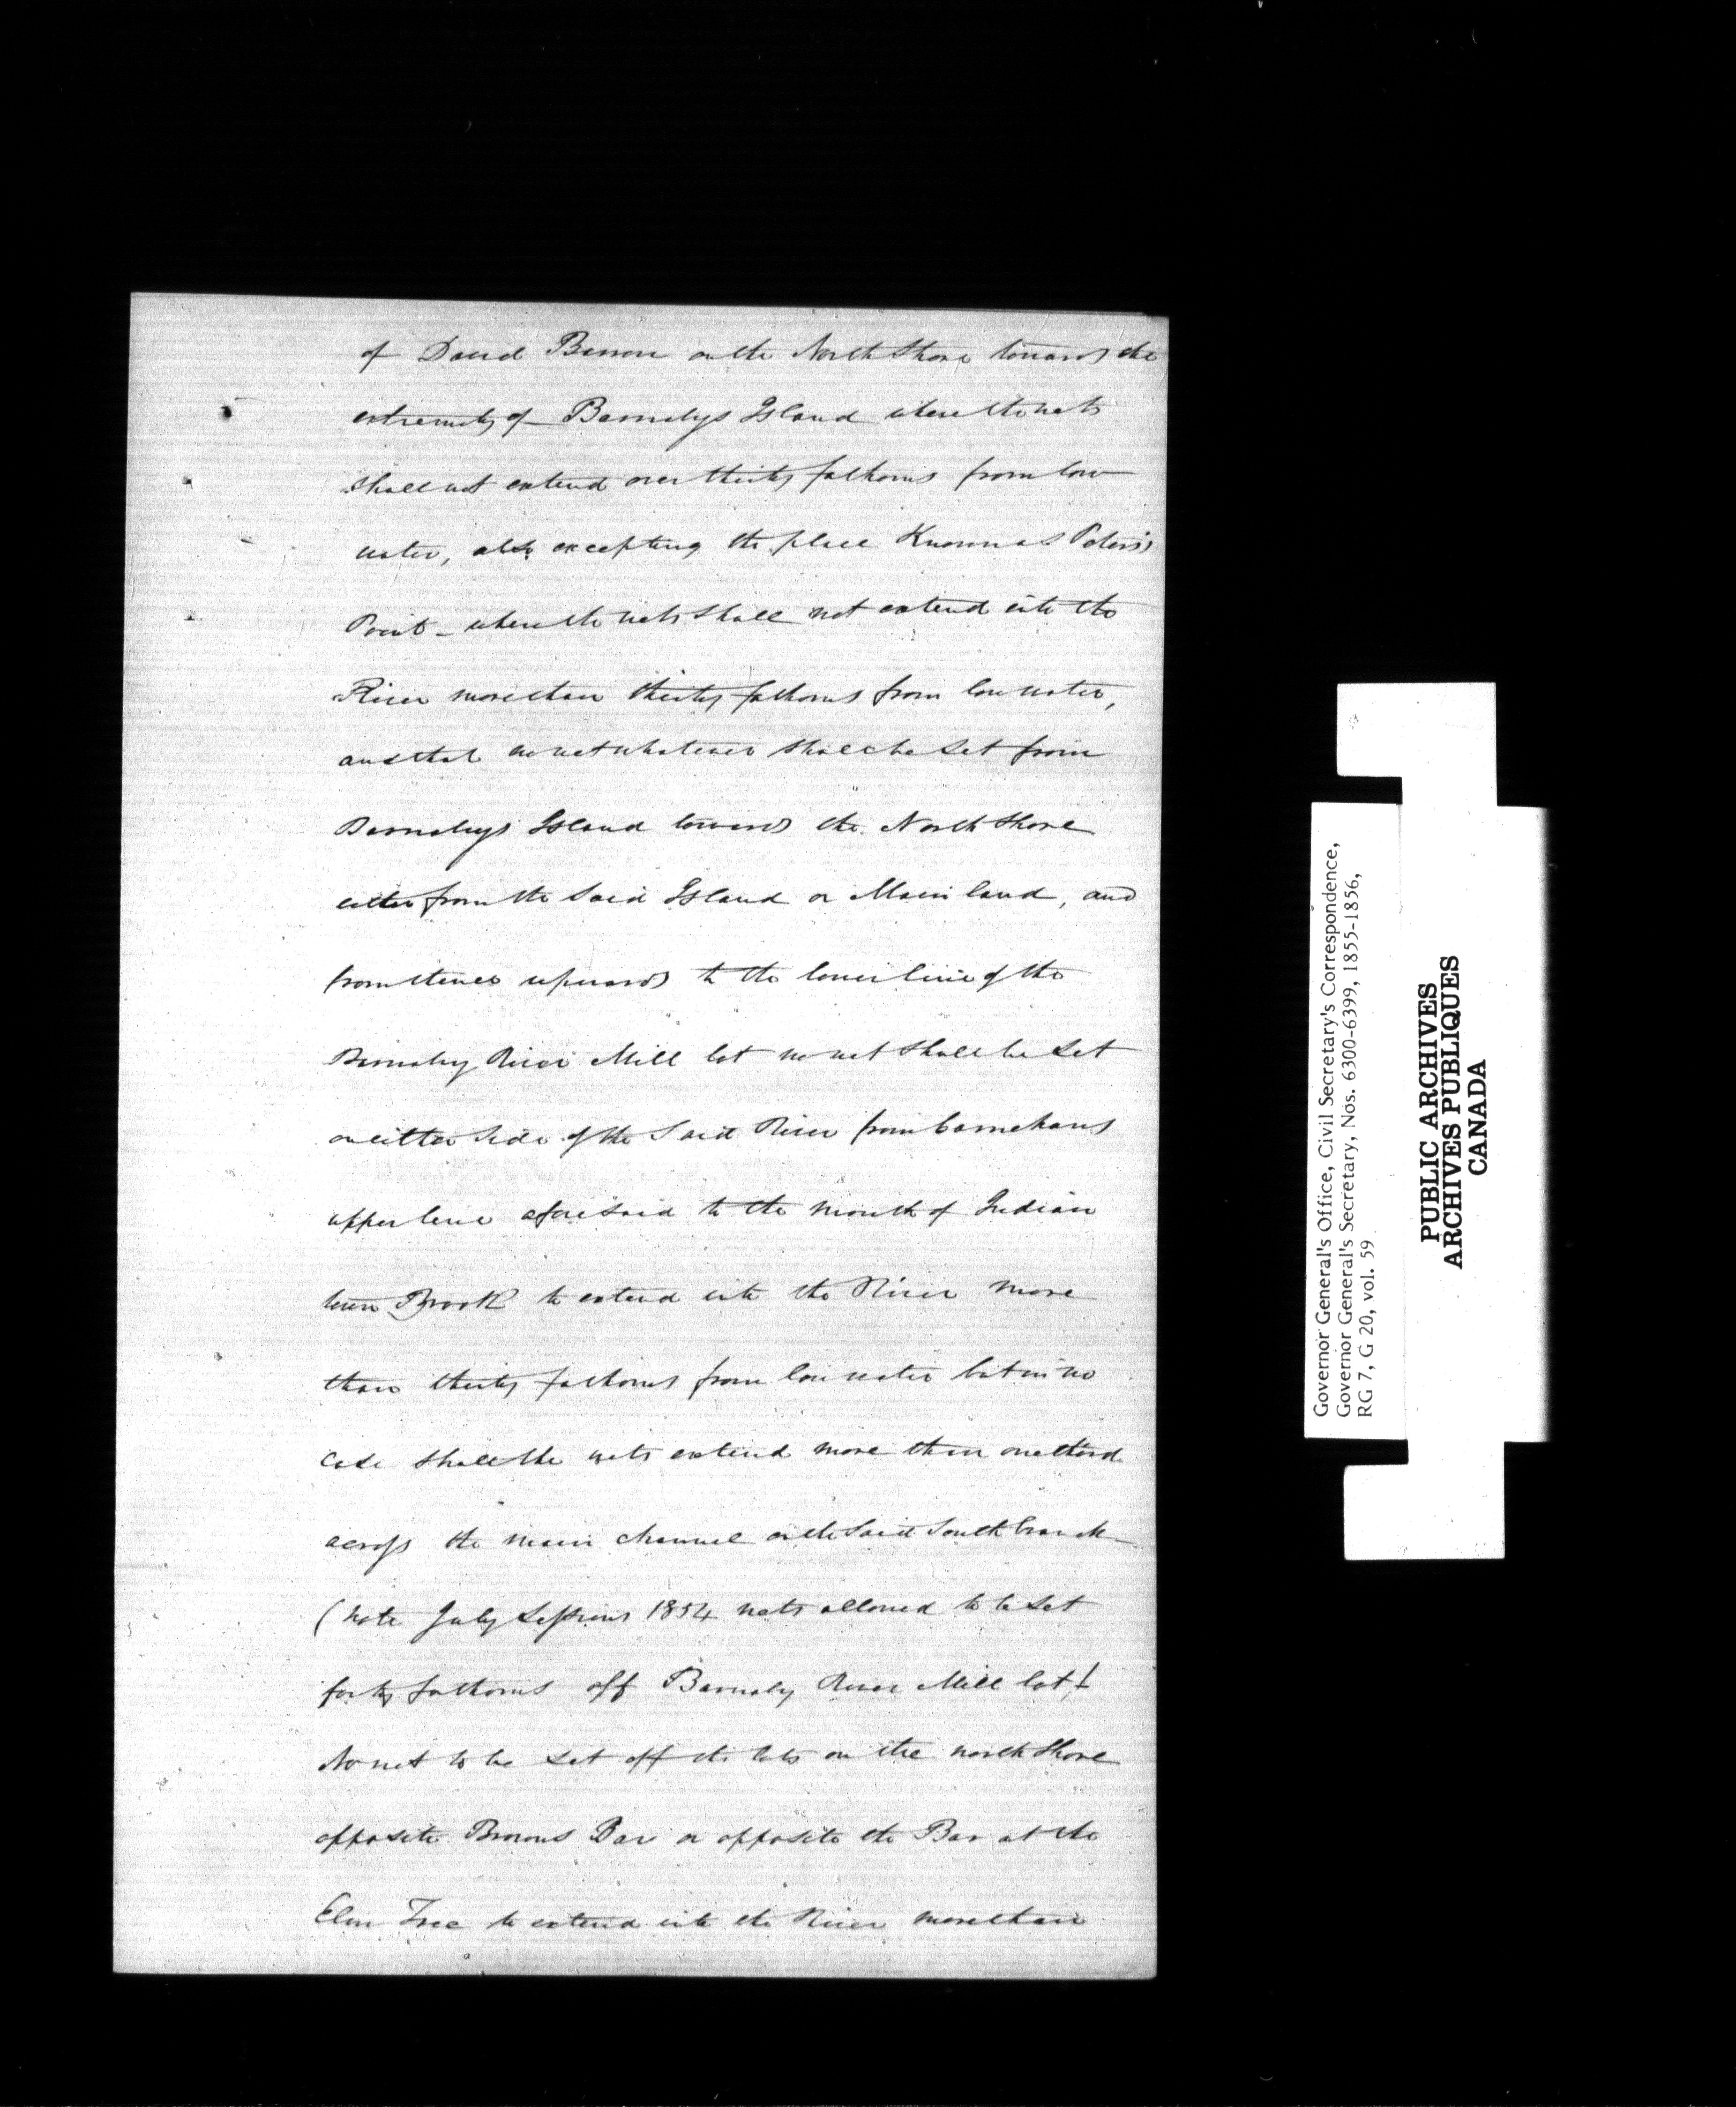 of David Benson on the North Shore towards the
extremity of Barnabys Island where the nets
shall not extend over thirty fathoms from low
water, also excepting the place Known as Peters's
Point - where the nets shall not extend into the
River more than thirty fathoms from low water,
and that no net whatever shall be set from
Barnabys Island towards the North Shore
either from the said Island or Main land, and
from thence upwards to the lower line of the
Barnaby River Mill lot no net shall be set
on either side of the Said River from Carnahans
upper line aforesaid to the mouth of Indian
town Brook to extend into the River more
than thirty fathoms from low water but in no
case shall the nets extend more than one third
across the main channel on the Said South branch
(Note July Sessions 1854 nets allowed to be set
forty fathoms off Barnaby River Mill lot)
No net to be set off the lots on the north Shore
opposite Browns Bar or opposite the Bar at the
Elm Tree to extend into the River more than
Governor General's Office, Civil Secretary's Correspondence,
Governor General's Secretary, Nos. 6300-6399, 1855-1856,
RG 7, G 20, vol. 59
PUBLIC ARCHIVES
ARCHIVES PUBLIQUES
CANADA